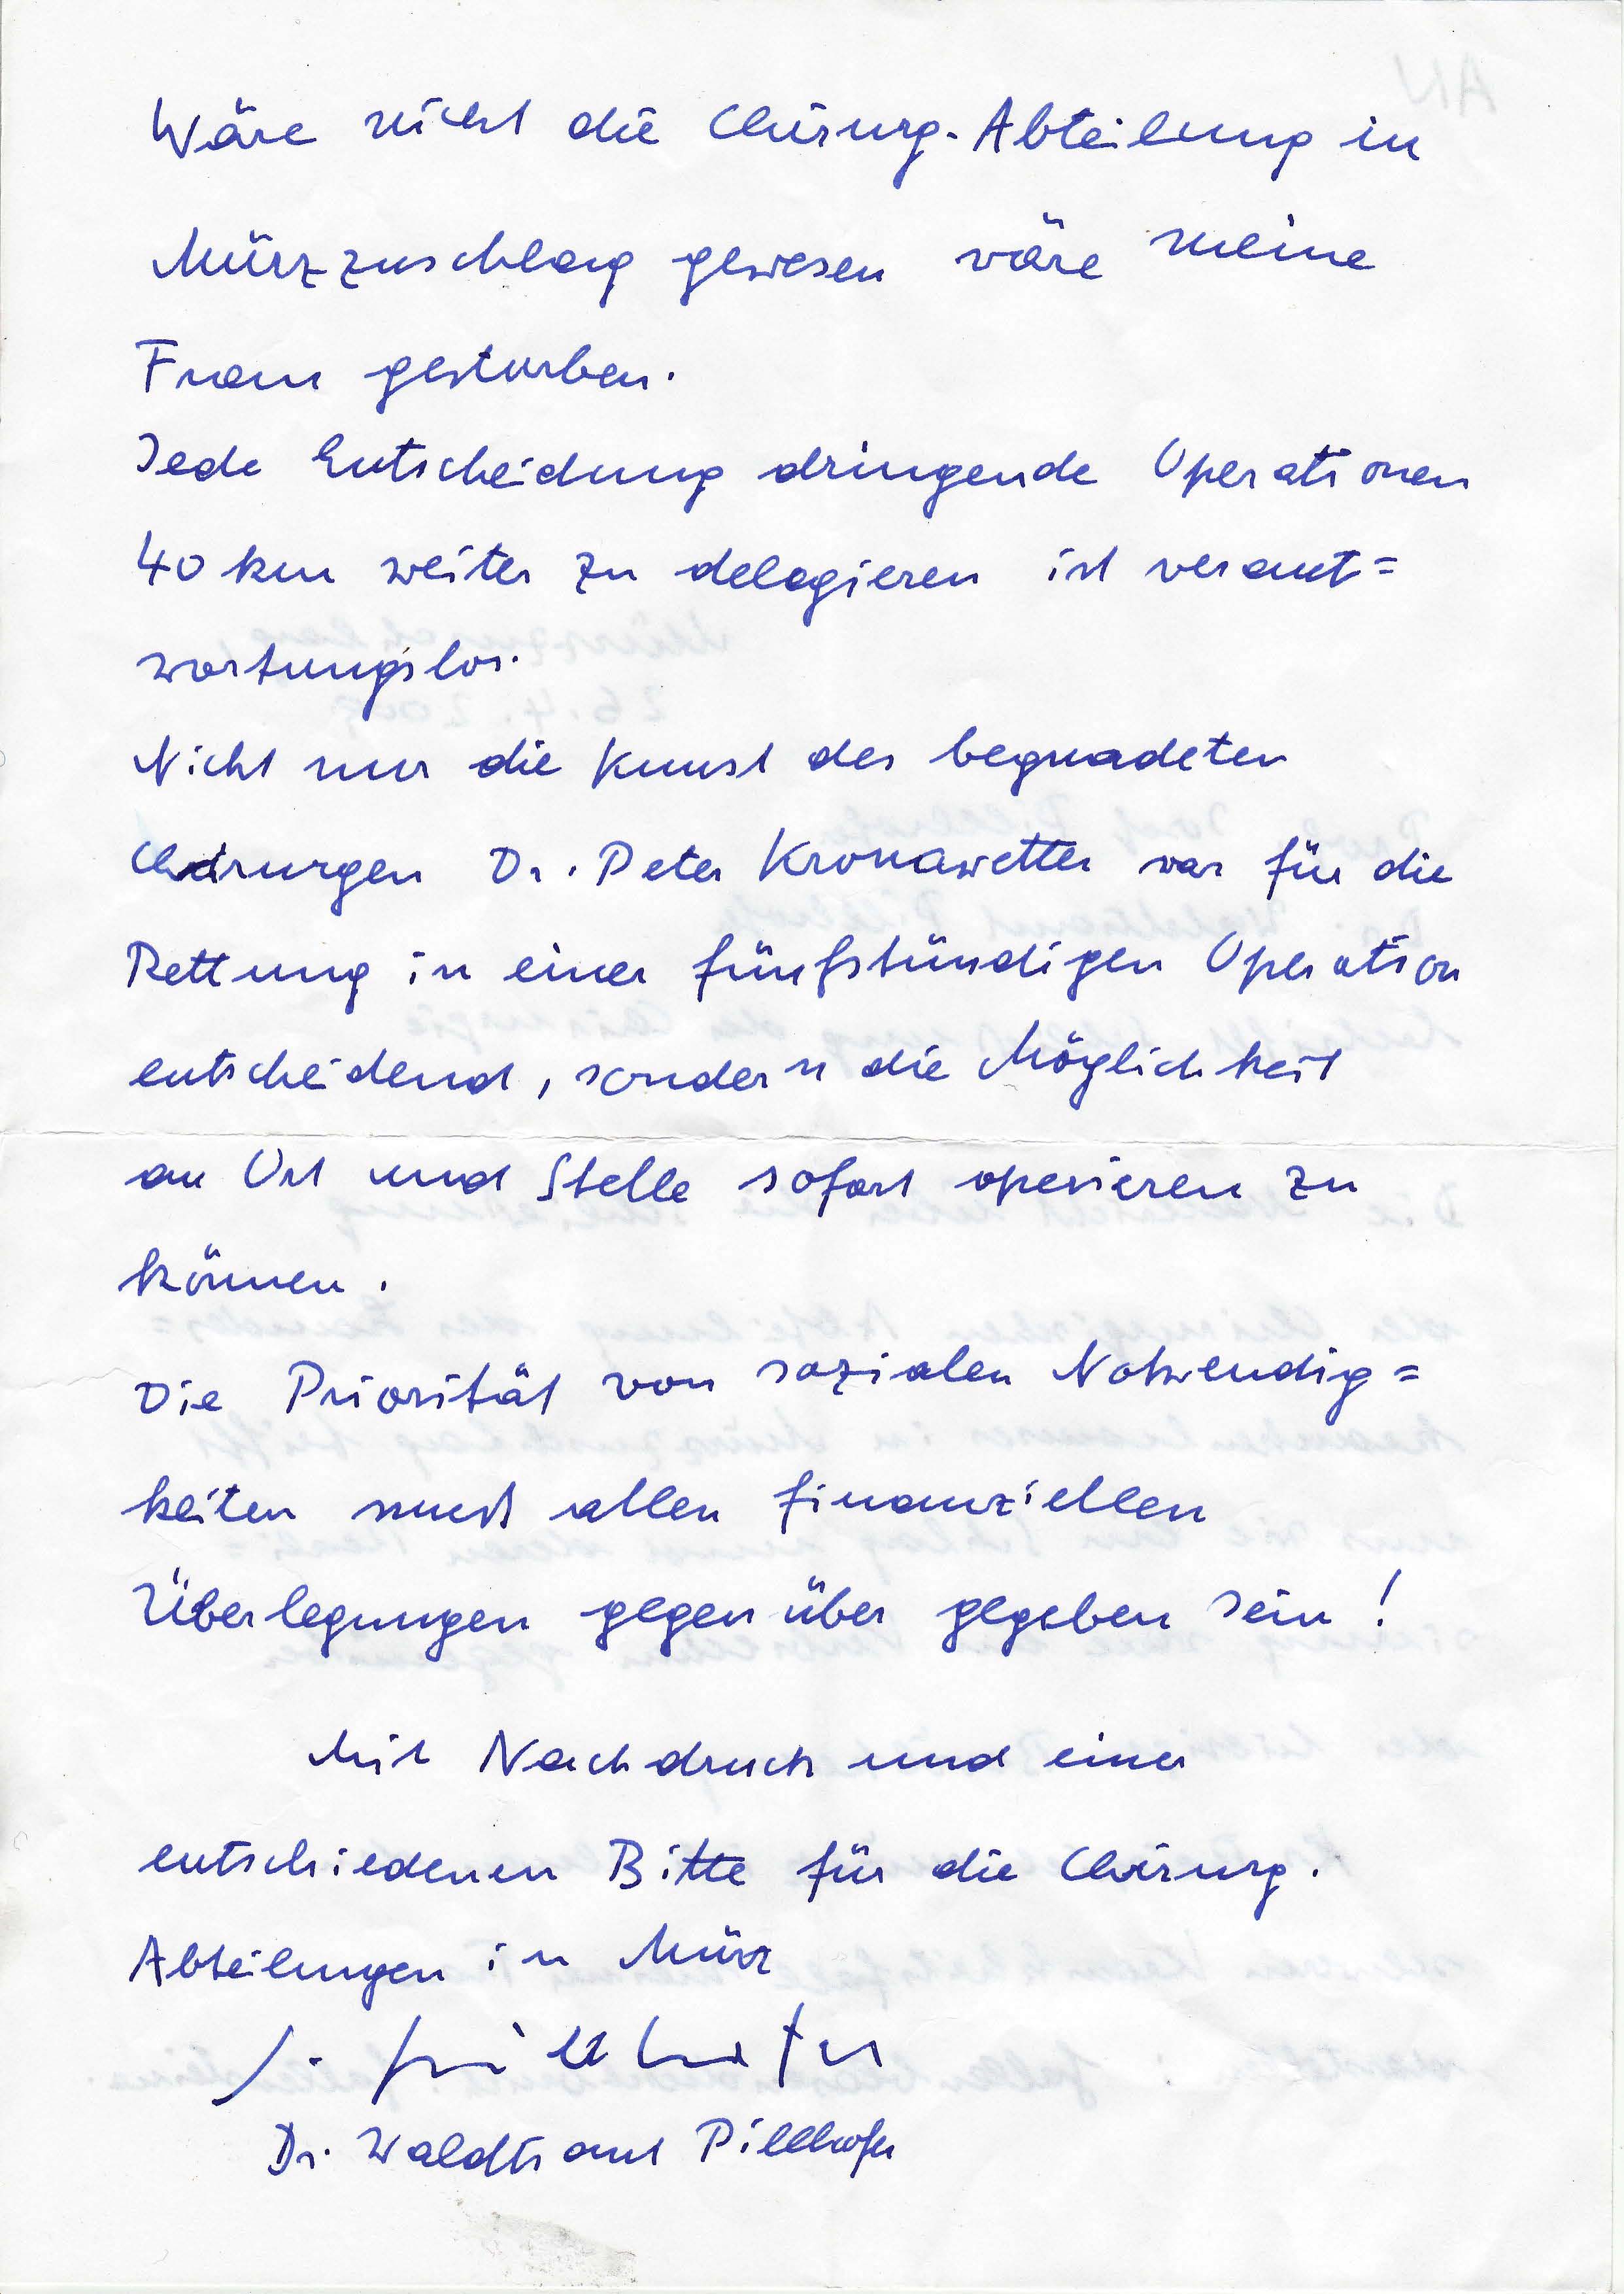 Wäre nicht die Chirurg.-Abteilung in
Mürzzuschlag gewesen wäre meine
Frau gestorben.
Jede Entscheidung dringende Operationen
40 km weiter zu delegieren ist verant=
wortungslos.
Nicht nur die Kunst des begnadeten
Chirurgen Dr. Peter Kronawetter war für die
Rettung in einer fünfstündigen Operation
entscheidend, sondern die Möglichkeit
an Ort und Stelle sofort operieren zu
können.
Die Priorität von sozialen Notwendig=
keiten muß allen finanziellen
Überlegungen gegenüber gegeben sein!
Mit Nachdruck und einer
entschiedenen Bitte für die Chirurg.
Abteilungen in Mürz
J. Pillhofer
Dr. Waldtraut Pillhofer